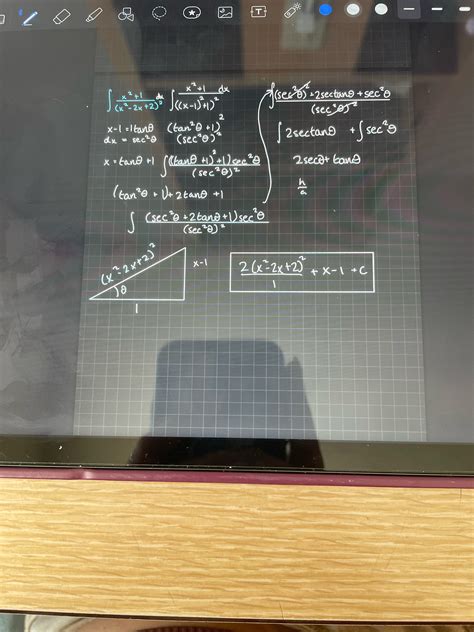 ∫ (x²+1)/(x²-2x+2)² dx   ∫ (x²+1)/((x-1)²+1)² dx
x-1 = 1tanθ   (tan²θ+1)²
dx = sec²θ   (sec²θ)²
x = tanθ +1   ∫ ((tanθ+1)²+1) sec²θ/(sec²θ)²
(tan²θ + 1)+2tanθ +1
∫ (sec²θ+2tanθ+1)sec²θ/(sec²θ)²
(x²-2x+2)²
θ
1
x-1
∫ (sec²θ)²+2sectanθ+sec²θ/(sec²θ)²
∫ 2sectanθ + ∫ sec²θ
2secθ+tanθ
h/a
2(x²-2x+2)²/1 + x-1 +C